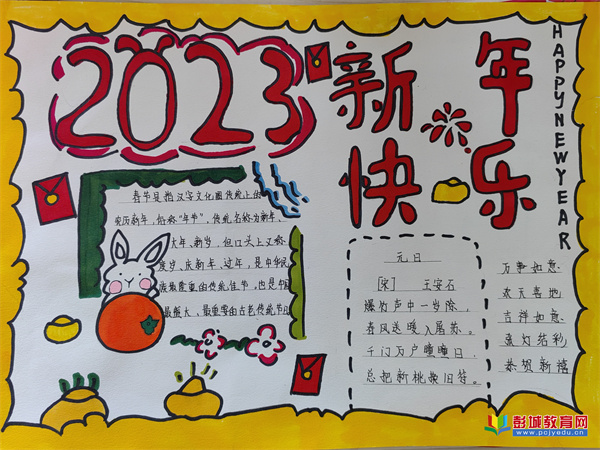 2023
新年
快乐
HAPPY NEW YEAR
春节是指汉字文化圈传统上的
农历新年，俗称“年节”，传统名称为新年、
大年、新岁，但口头上又称
度岁、庆新年、过年，是中华民
族最隆重的传统佳节。也是中国
最盛大、最重要的古老传统节日
元日
[宋] 王安石
爆竹声中一岁除，
春风送暖入屠苏。
千门万户曈曈日，
总把新桃换旧符。
万事如意
欢天喜地
吉祥如意
灯结
恭贺新禧
彭城教育网
www.pcjyedu.cn